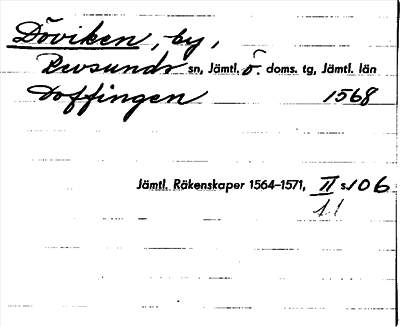 Döviken, by,
Revsunds sn, Jämtl. ö. doms. tg, Jämtl. län
Doffingen 1568
Jämtl. Räkenskaper 1564–1571, II s. 106
11